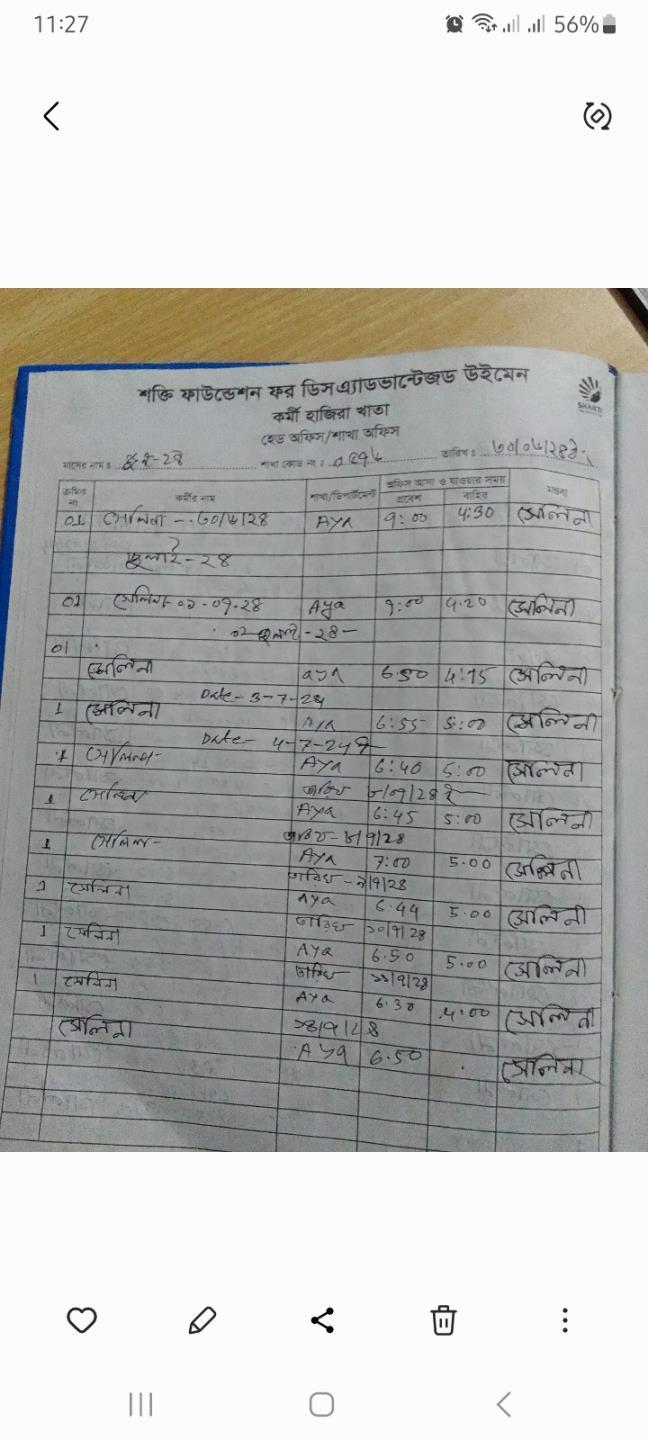 11:27
56%
শক্তি ফাউন্ডেশন ফর ডিসএ্যাডভান্টেজড উইমেন
কর্মী হাজিরা খাতা
হেড অফিস/শাখা অফিস
মাসের নাম : জুন-২৪ শাখা কোড নং : তারিখ : ৩০/০৬/২৪
ক্রমিক নং কর্মীর নাম শাখা/ডিপার্টমেন্ট অফিস আসা ও যাওয়ার সময় মন্তব্য
প্রবেশ বাহির
01 সেলিনা - ৩০/৬/২৪ AYA 9:00 4:30 সেলিনা
জুলাই - ২৪
01 সেলিনা ০১-০৭-২৪ Aya 9:00 4:20 সেলিনা
০২ জুলাই - ২৪
01
সেলিনা aya 6:50 4:15 সেলিনা
Date- 3-7-24
1 সেলিনা AYA 6:55 5:00 সেলিনা
Date- 4-7-24
1 সেলিনা AYA 6:40 5:00 সেলিনা
তারিখ ৮/০৭/২৪
1 সেলিনা AYA 6:45 5:00 সেলিনা
তারিখ /৭/২৪
1 সেলিনা AYA 7:00 5.00 সেলিনা
তারিখ - ৯/৭/২৪
1 সেলিনা AYA 6.44 5.00 সেলিনা
তারিখ ১০/৭/২৪
1 সেলিনা AYA 6.50 5.00 সেলিনা
তারিখ ১১/৭/২৪
1 সেলিনা AYA 6.30 4:00 সেলিনা
সেলিনা ১৪/৭/২৪
AYA 6.50 সেলিনা